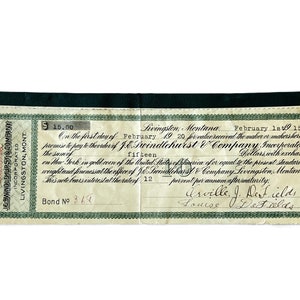 $ 15.00 Livingston, Montana, February 1st 191
On the first day of February 1920 for value received the maker or makers hereof
promise to pay to the order of J.C. Swindlehurst & Company, Incorporated
the sum of fifteen Dollars, with exchange
on New York in gold coin of the United States of America of or equal to the present standard
weight and fineness at the office of J.C. Swindlehurst & Company, Livingston, Montana.
This note bears interest at the rate of 12 percent per annum after maturity.
Orville J. DeFields
Bond No Louise DeFields
INCORPORATED
LIVINGSTON, MONT.